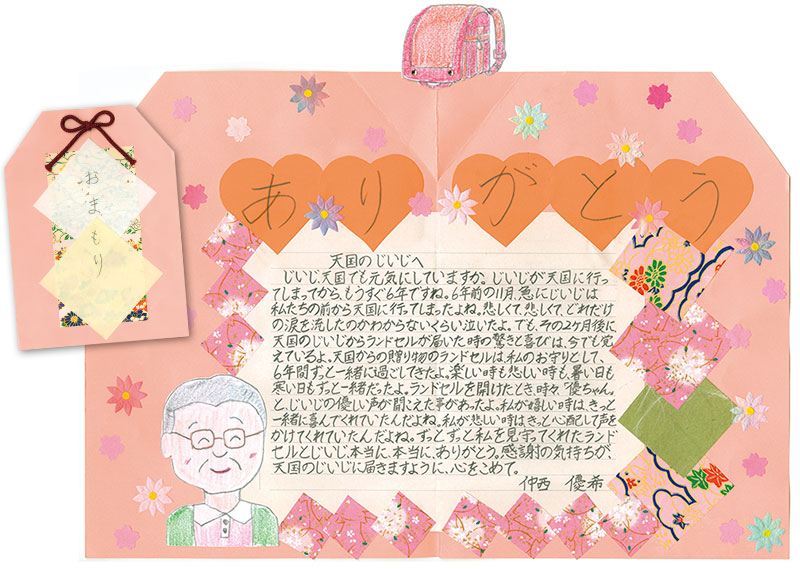 おまもり
ありがとう
天国のじいじへ
じいじ、天国でも元気にしていますか。じいじが天国に行っ
てしまってから、もうすぐ6年ですね。6年前の11月、急にじいじは
私たちの前から天国に行ってしまったよね。悲しくて、悲しくて、どれだけ
の涙を流したのかわからないくらい泣いたよ。でも、その2ヶ月後に
天国のじいじからランドセルが届いた時の驚きと喜びは、今でも覚
えているよ。天国からの贈り物のランドセルは私のお守りとして、
6年間ずっと一緒に過ごしてきたよ。楽しい時も悲しい時も、暑い日も
寒い日もずっと一緒だったよ。ランドセルを開けたとき、時々、「優ちゃん」
と、じいじの優しい声が聞こえた事があったよ。私が嬉しい時は、きっと
一緒に喜んでくれていたんだよね。私が悲しい時はきっと心配して声を
かけてくれていたんだよね。ずっとずっと私を見守ってくれたランド
セルとじいじ、本当に、本当に、ありがとう。感謝の気持ちが、
天国のじいじに届きますように、心をこめて。
仲西 優希